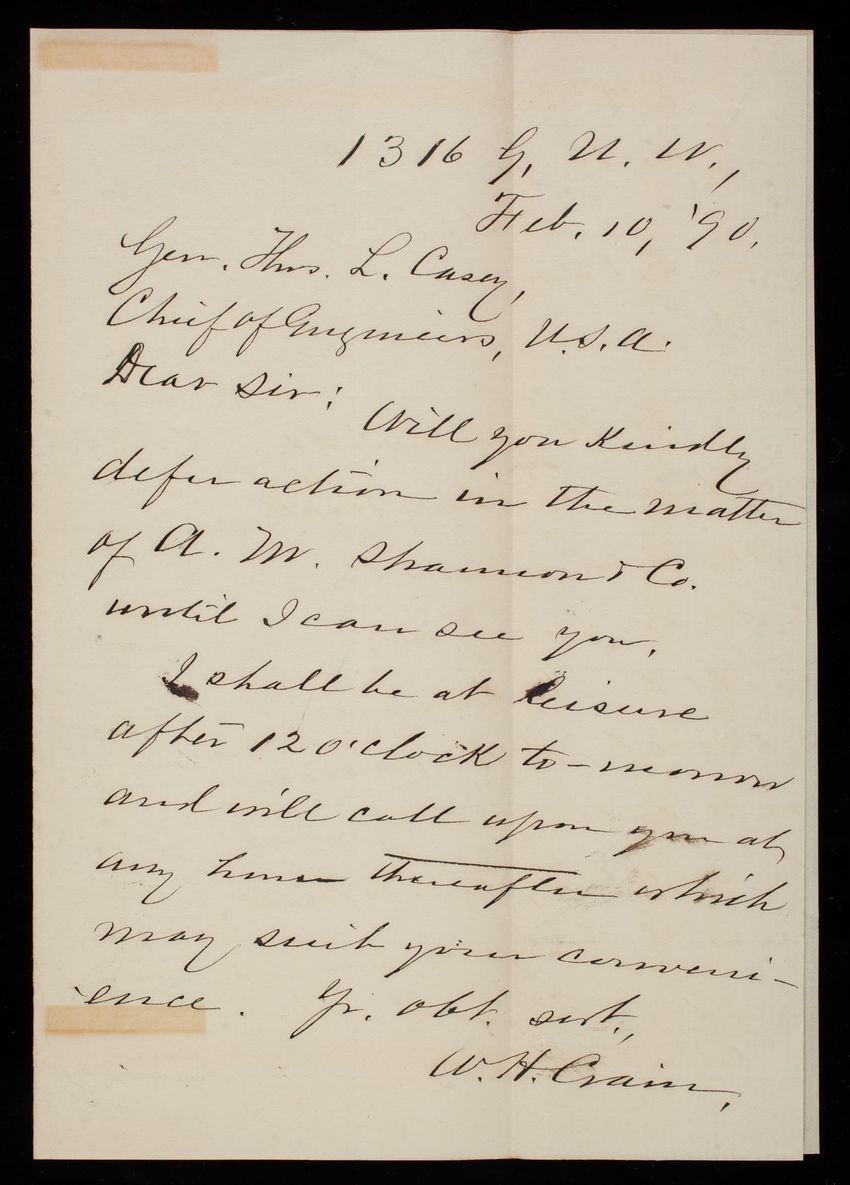 1316 G, N. W.,
Feb. 10, '90.
Gen. Thos. L. Casey,
Chief of Engineers, U.S.A.
Dear Sir:
Will you kindly
defer action in the matter
of A. M. Shannon & Co.
until I can see you.
I shall be at leisure
after 12 o'clock to-morrow
and will call upon you at
any hour thereafter which
may suit your conveni-
ence. Yr. obt. svt.,
W. H. Crain,